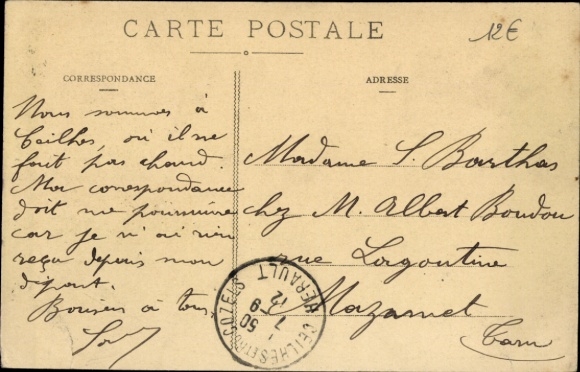 CARTE POSTALE
12€
CORRESPONDANCE
ADRESSE
Nous sommes à
Ceilhes, où il ne
fait pas chaud.
Ma correspondance
doit me poursuivre
car je n'ai rien
reçu depuis mon
départ.
Baisers à tous.
Madame S. Barthas
chez M. Albert Boudou
rue Lagoutine
Mazamet
Tarn
CEILHES ET ROCOZELS
HERAULT